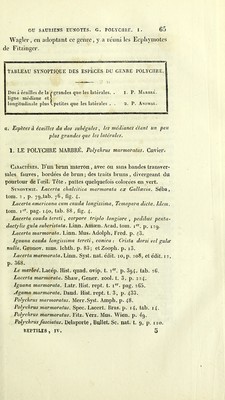 DU SAURIENS EUNOTES. G. POLYCHRE. 1. 65
Wagler, en adoptant ce genre, y a réuni les Ecphymotes
de Fitzinger.
TABLEAU SYNOPTIQUE DES ESPÈCES DU GENRE POLYCHRE.
Dos à écailles de la grandes que les latérales . . 1. P. Marbré.
ligne médiane et plus
longitudinale petites que les latérales . . 2. P. Anomal.
a. Espèces à écailles du dos subégales, les médianes étant un peu
plus grandes que les latérales.
1. LE POLYCHRE MARBRÉ. Polychrus marmoratus. Cuvier.
Caractères. D'un brun marron, avec ou sans bandes transver-
sales, fauves, bordées de brun; des traits bruns, divergeant du
pourtour de l'œil. Tête, pattes quelquefois colorées en vert.
Synonymie. Lacerta chalcitica marmorata ex Gallæcia. Séba,
tom. 1, p. 79, tab. 76, fig. 4.
Lacerta americana cum cauda longissima, Temapara dicta. Idem.
tom. 1er. pag. 140, tab. 88, fig. 4.
Lacerta cauda tereti, corpore triplo longiore, pedibus penta-
dactylis gula subcristata. Linn. Amœn. Acad. tom. 1er, p. 129.
Lacerta marmorata. Linn. Mus. Adolph. Fred. p. 43.
Iguana cauda longissima tereti, conica: Crista dorsi vel gulæ
nullis. Gronov. mus. Ichth. p. 85; et Zooph. p. 13.
Lacerta marmorata. Linn. Syst. nat. édit. 10, p. 208, et édit. 12,
p. 368.
Le marbré. Lacép. Hist. quad. ovip. t. 1er, p. 394, tab. 26.
Lacerta marmorata. Shaw, Gener. zool. t. 3, p. 214.
Iguana marmorata. Latr. Hist. rept. t. 1er. pag. 265.
Agama marmorata. Daud. Hist. rept. t. 3, p. 433.
Polychrus marmoratus. Merr. Syst. Amph. p. 48.
Polychrus marmoratus. Spec. Lacert. Bras. p. 14, tab. 14.
Polychrus marmoratus. Fitz. Verz. Mus. Wien. p. 49.
Polychrus fasciatus. Delaporte, Bullet. Sc. nat. t. 9, p. 110.
REPTILES, IV. 5